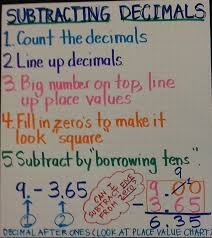 SUBTRACTING DECIMALS
1. Count the decimals
2. Line up decimals
3. Big number on top, line
up place values
4. Fill in zero's to make it
look "square"
5 Subtract by "borrowing tens"
9. - 3.65
1 2
CAN I
SUBTRACT 5
FROM ZERO?
9
9.00
- 3.65
6.35
DECIMAL AFTER ONES (LOOK AT PLACE VALUE CHART)